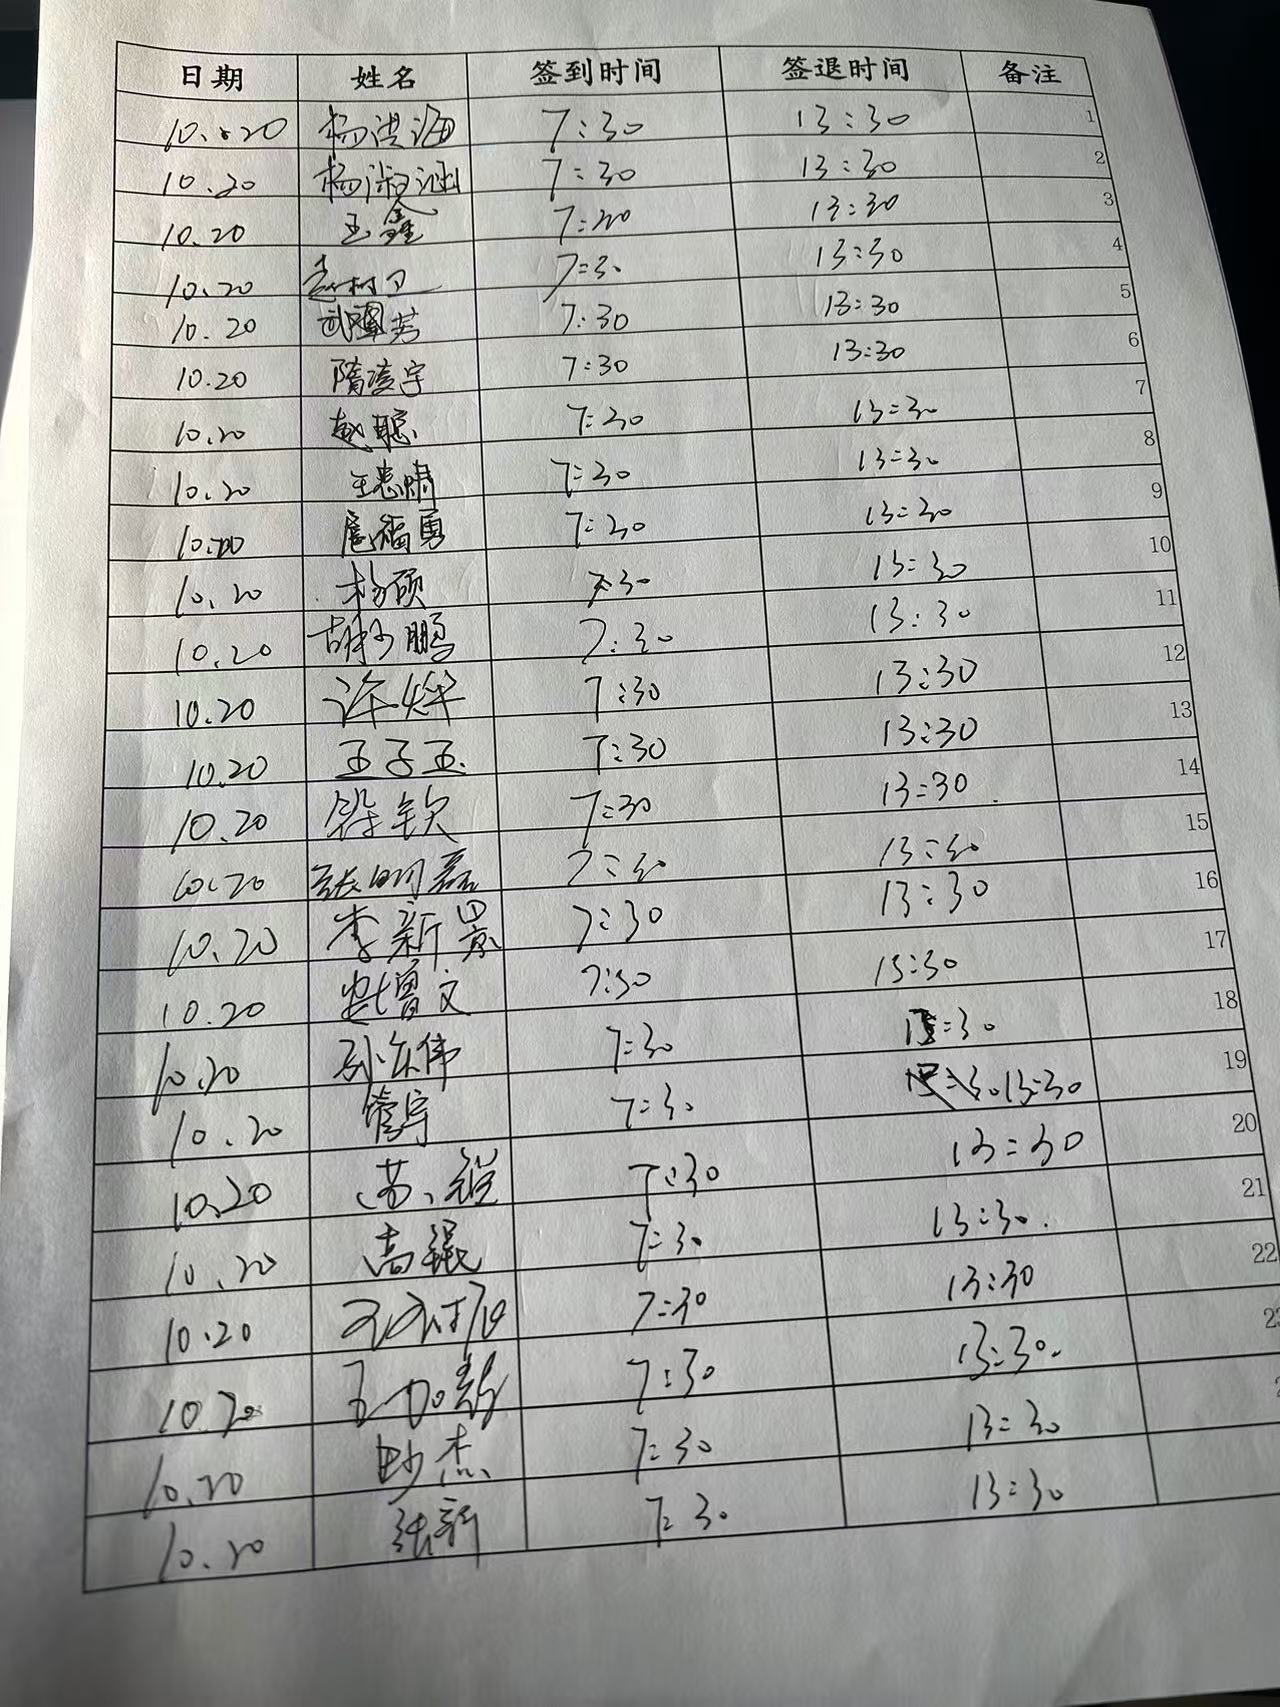 日期 姓名 签到时间 签退时间 备注
10.20 杨洪海 7:30 13:30 1
10.20 杨淑涵 7:30 13:30 2
10.20 王鑫 7:30 13:30 3
10.20 7:30 13:30 4
10.20 武 芳 7:30 13:30 5
10.20 隋凌宇 7:30 13:30 6
10.20 赵聪 7:30 13:30 7
10.20 王忠 7:30 13:30 8
10.20 福勇 7:30 13:30 9
10.20 杨硕 7:30 13:30 10
10.20 胡少鹏 7:30 13:30 11
10.20 许烨 7:30 13:30 12
10.20 王子玉 7:30 13:30 13
10.20 段钦 7:30 13:30 14
10.20 张明磊 7:30 13:30 15
10.20 李新景 7:30 13:30 16
10.20 赵增文 7:30 13:30 17
10.20 孙 伟 7:30 13:30 18
10.20 管宇 7:30 13:30 19
10.20 苏 7:30 13:30 20
10.20 高锟 7:30 13:30 21
10.20 7:30 13:30 22
10.20 王加 7:30 13:30
10.20 杰 7:30 13:30
10.20 张新 7:30 13:30